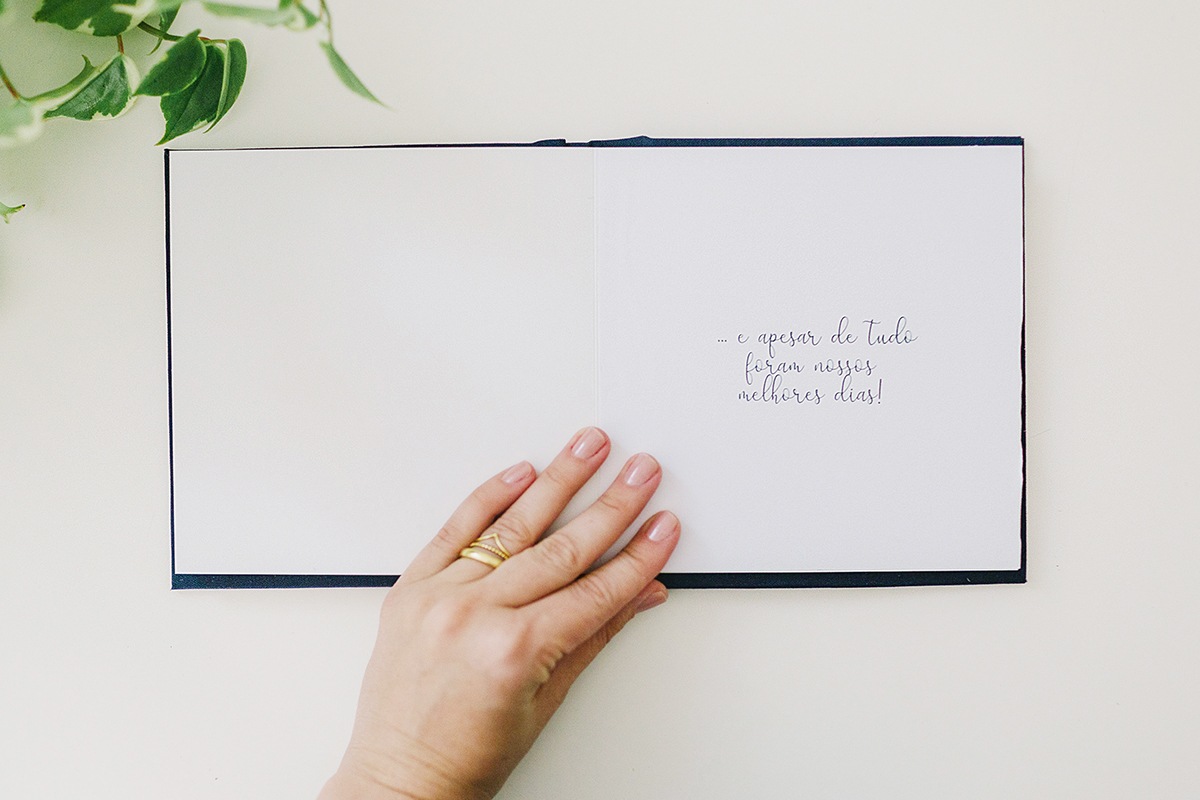 ... e apesar de tudo
foram nossos
melhores dias!